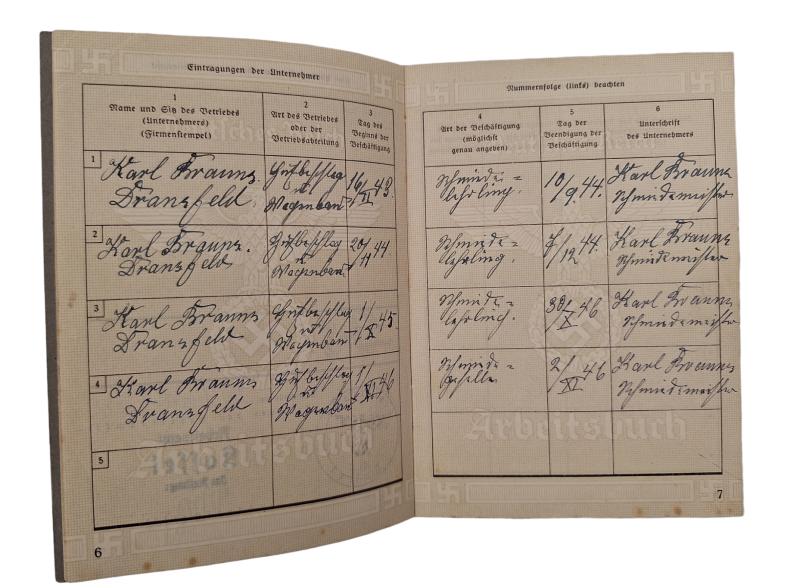 Eintragungen der Unternehmer
1
Name und Sitz des Betriebes
(Unternehmers)
(Firmenstempel)
2
Art des Betriebes
oder der
Betriebsabteilung
3
Tag des
Beginns der
Beschäftigung
1
Karl Brauns
Dransfeld
Hufbeschlag
u
Wagenbau
16/XI 43.
2
Karl Brauns.
Dransfeld
Hufbeschlag
u
Wagenbau
20/11 44
3
Karl Brauns
Dransfeld
Hufbeschlag
u
Wagenbau
1/X 45.
4
Karl Brauns
Dransfeld
Hufbeschlag
u
Wagenbau
1/XI 46
5
6
Nummernfolge (links) beachten
4
Art der Beschäftigung
(möglichst
genau angeben)
5
Tag der
Beendigung der
Beschäftigung
6
Unterschrift
des Unternehmers
Schmiede=
lehrling.
10/9. 44.
Karl Brauns
Schmiedemeister
Schmiede=
lehrling.
7/12 44.
Karl Brauns
Schmiedemeister
Schmiede=
lehrling.
/X 46
Karl Brauns
Schmiedemeister
Schmiede=
geselle
2/XI 46
Karl Brauns
Schmiedemeister
Arbeitsbuch
Arbeitsbuch
7